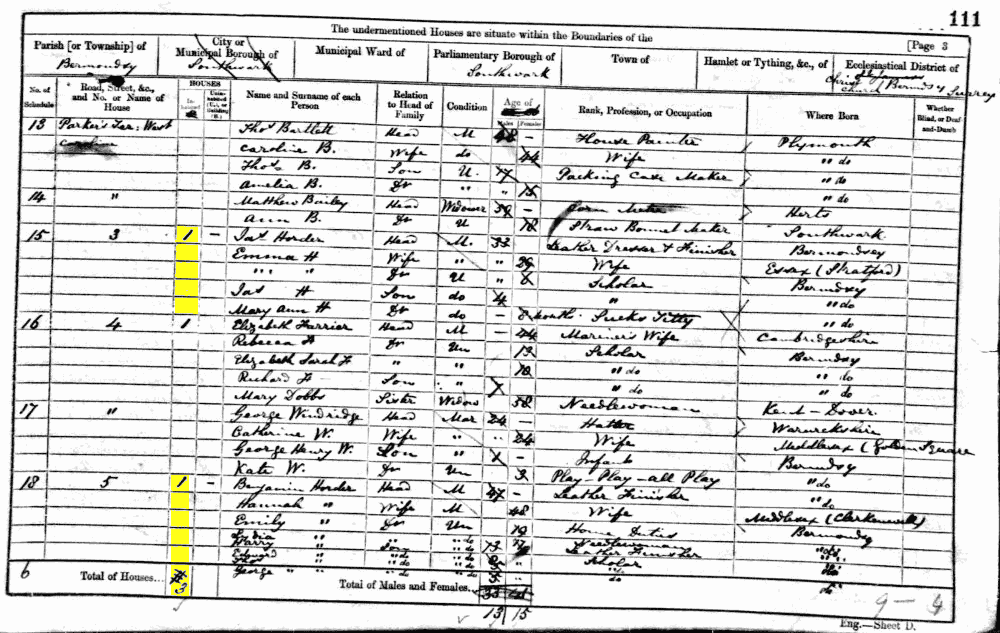 111
The undermentioned Houses are situate within the Boundaries of the
[Page 3
Parish [or Township] of
Bermondsey
City or Municipal Borough of
Southwark
Municipal Ward of
Parliamentary Borough of
Southwark
Town of
Hamlet or Tything, &c., of
Ecclesiastical District of
St James
Christ Church Bermdsy Surrey
No. of Schedule
Road, Street, &c., and No. or Name of House
HOUSES
Name and Surname of each Person
Relation to Head of Family
Condition
Age of
Males
Females
Rank, Profession, or Occupation
Where Born
Whether Blind, or Deaf-and-Dumb
13 Parker's Ter: West Thos Bartlett Head M 48 – House Painter Plymouth
Caroline Caroline B. Wife do 44 Wife " do
Thos B. Son U. 17 Packing Case Maker " do
Amelia B. Dr " " 15 " do
14 " Matthew Bailey Head Widower 59 – Herts
Ann B. Dr U 18 Straw Bonnet Maker Southwark
15 3 1 – Jas Horder Head M. 33 Leather Dresser & Finisher Bermondsey
Emma H Wife " " 29 Wife Essex (Stratford)
" " " Dr U " 8 Scholar Bermdsey
Jas H Son do 4 " " do
Mary Ann H Dr – 8 month Sucks Titty " do
16 4 1 Elizabeth Farrier Head M – 44 Mariner's Wife Cambridgeshire
Rebecca F Dr Un 13 Scholar Bermdsy
Elizabeth Sarah F " 10 " do " do
Richard F Son " " do " do
Mary Dobbs Sister Widow 58 Needlewoman Kent – Dover
17 " George Windridge Head Mar 24 – Hatter Warwickshire
Catherine W. Wife " " 24 Wife Middlesex (Golden Square
George Henry W. Son – Infant Bermdsy
Kate W. Dr Un 3 Play – Play – all Play " do
18 5 1 – Benjamin Horder Head M 47 – Leather Finisher " do
Hannah " Wife M 48 Wife Middlesex (Clerkenwell)
Emily " Dr Un 19 Home Duties Bermondsy
Lydia " " " do Needlewoman " do
Harry " Son " do 13 Leather Finisher
Edward " " do " do Scholar do
Thos " " do " do "
George " " " do " do do do
6 Total of Houses... 3
Total of Males and Females...
13 15
9 – 4
Eng.—Sheet D.